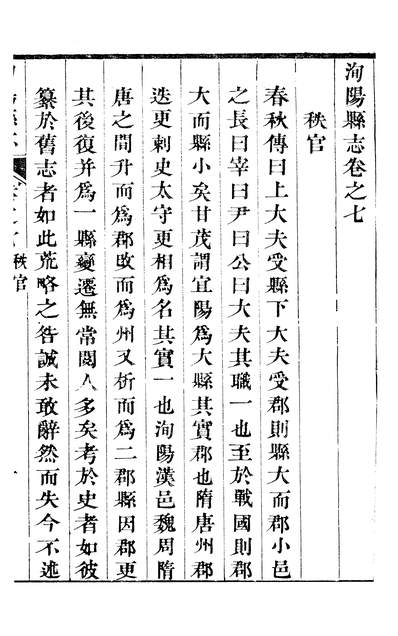 洵陽縣志卷之七
秩官
春秋傳曰上大夫受縣下大夫受郡則縣大而郡小邑
之長曰宰曰尹曰公曰大夫其職一也至於戰國則郡
大而縣小矣甘茂謂宜陽爲大縣其實郡也隋唐州郡
迭更刺史太守更相爲名其實一也洵陽漢邑魏周隋
唐之間升而爲郡改而爲州又析而爲二郡縣因郡更
其後復并爲一縣變遷無常閱人多矣考於史者如彼
纂於舊志者如此荒略之咎誠未敢辭然而失今不述
秩官
一